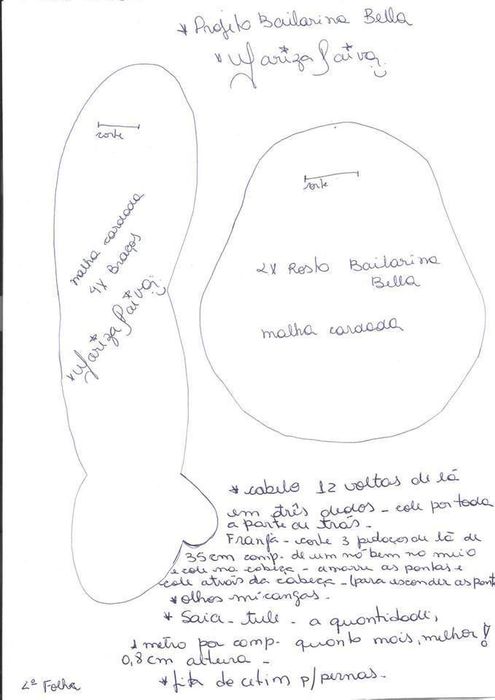 * Projeto Bailarina Bella
* Mariza Paiva
corte
malha cardada
4X Braços
* Mariza Paiva
corte
2X Rosto Bailarina
Bella
malha cardada
* cabelo 12 voltas de lã
em três dedos - cole por toda
a parte de trás -
Franja - corte 3 pedaços de lã de
35cm comp. de um nó bem no meio
e cole na cabeça - amarre as pontas e
cole atrás da cabeça - (para esconder as pont
* olhos miçangas.
* Saia - tule - a quantidade,
1 metro por comp. quanto mais, melhor!
0,8cm altura -
* fita de cetim p/ pernas.
2ª Folha